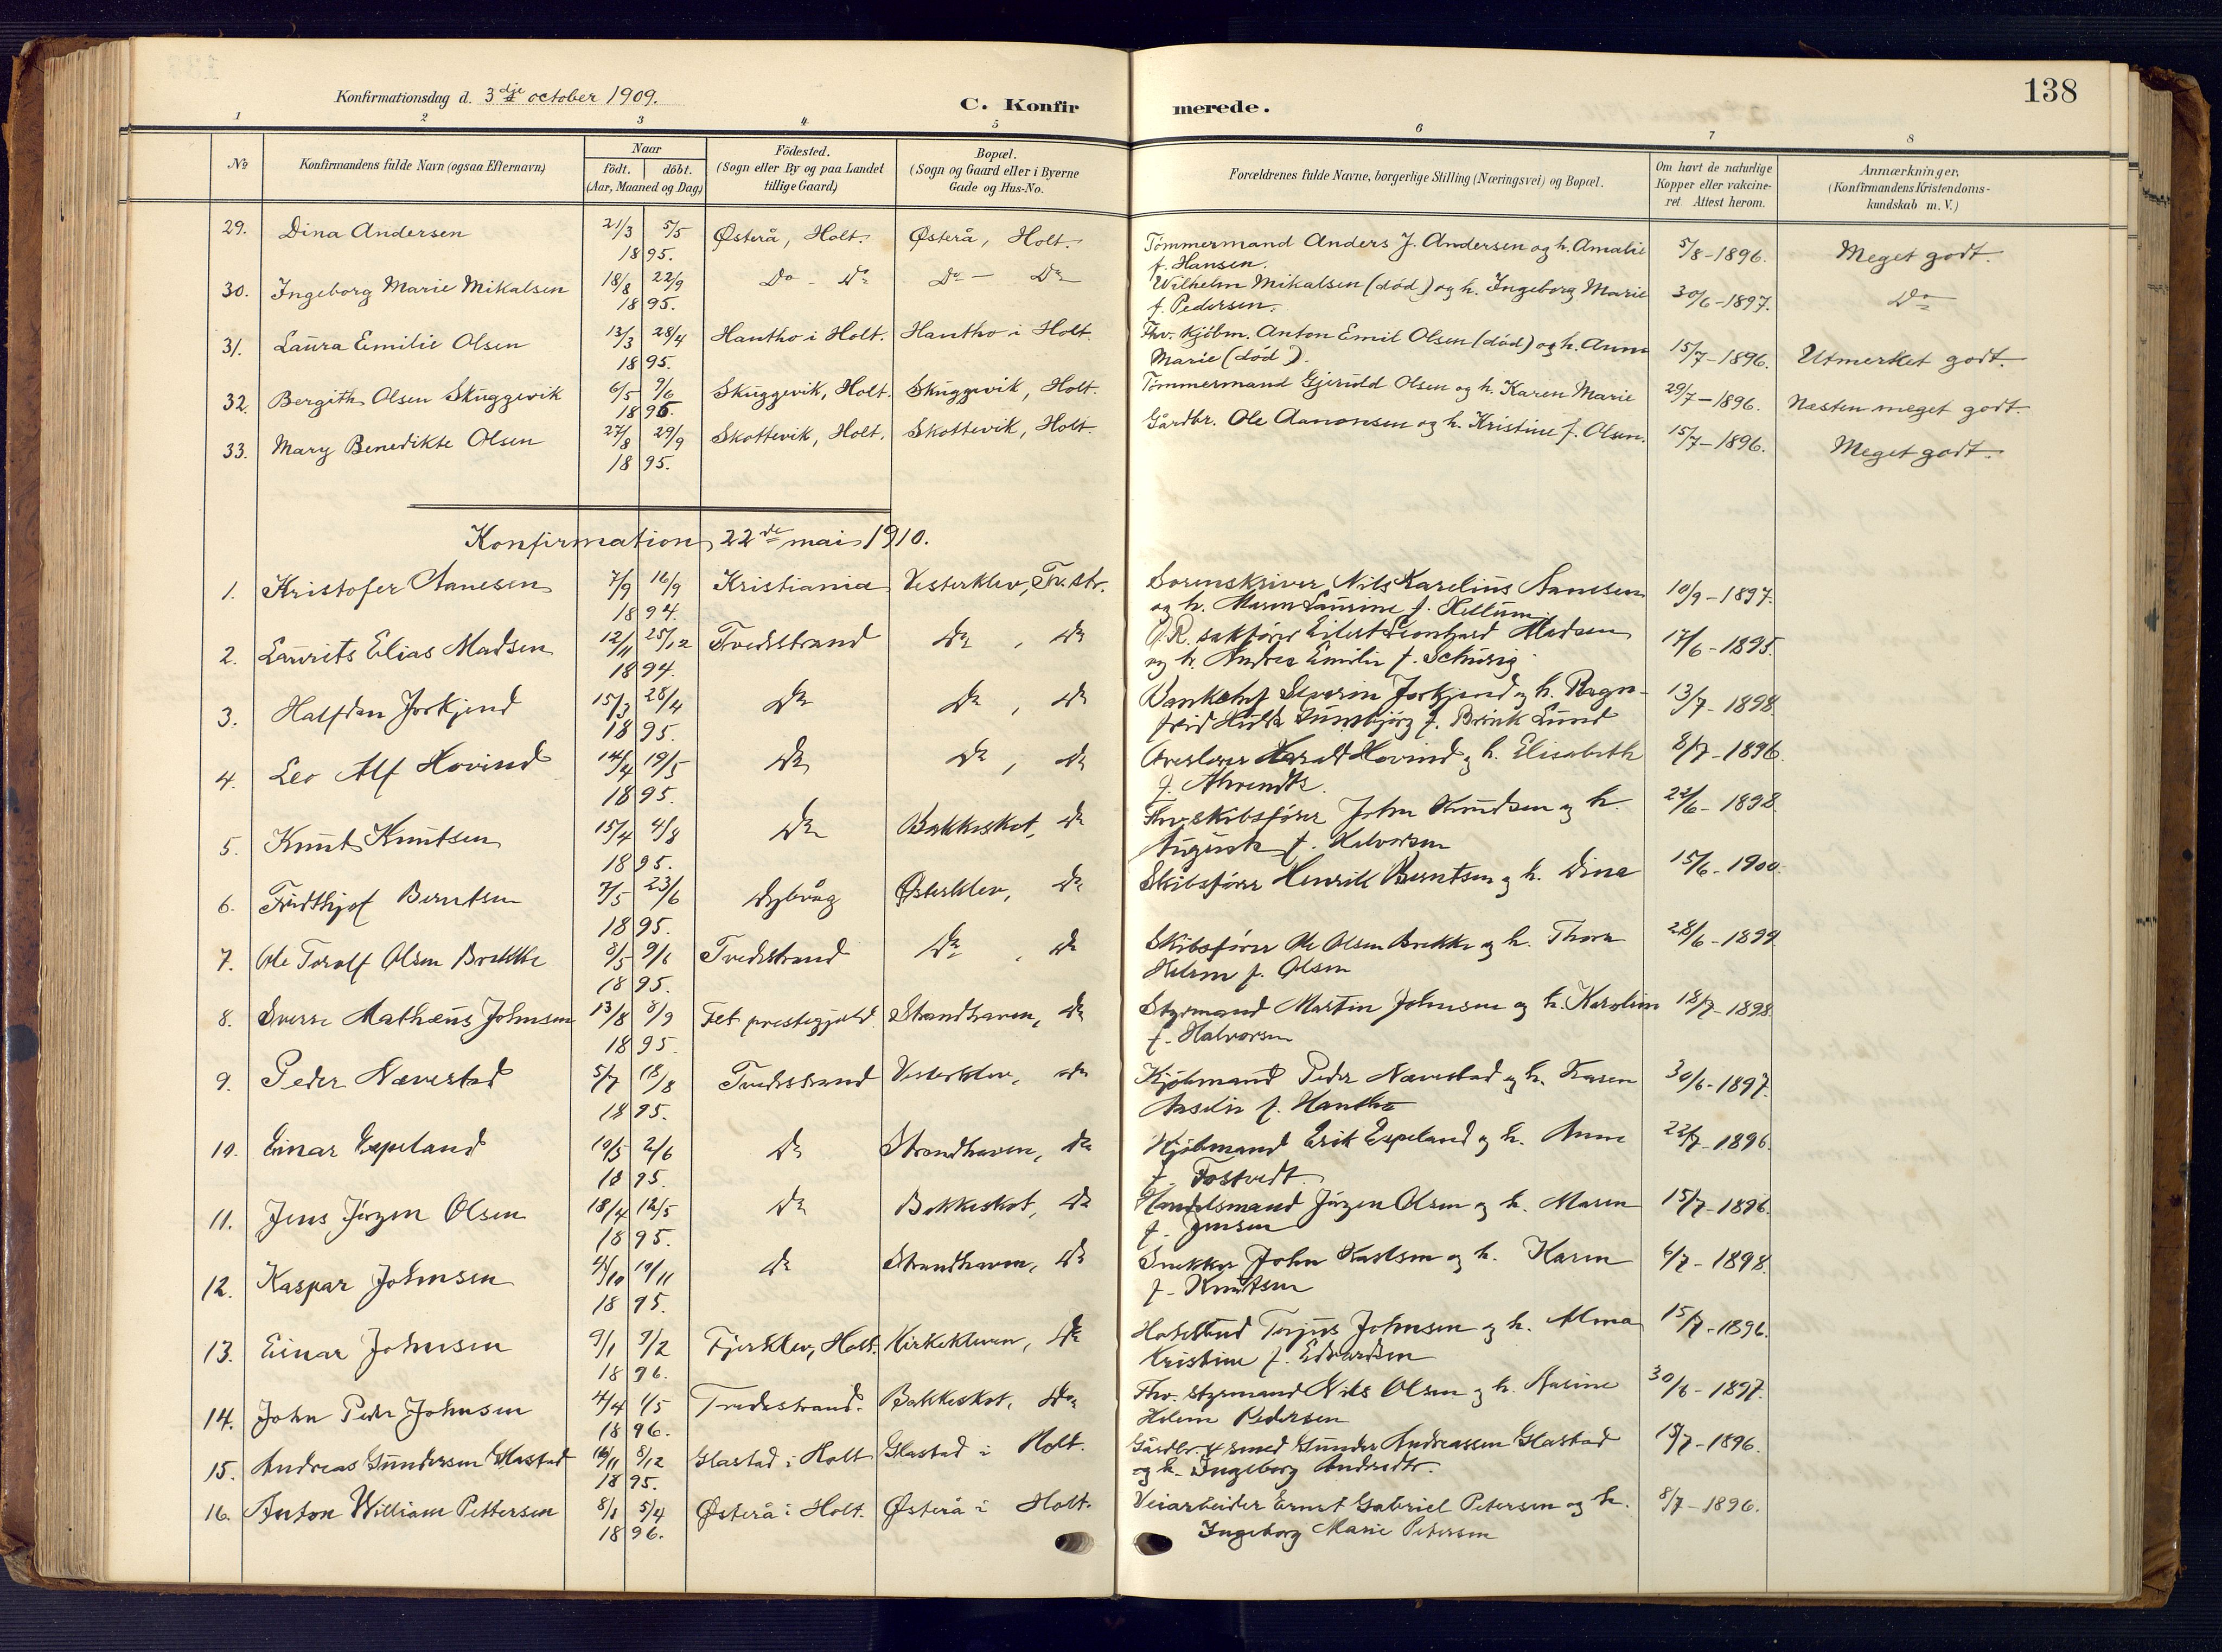 Konfirmationsdag d. 3dje october 1909.
C. Konfirmerede.
138
1 2 3 4 5 6 7 8
No
Konfirmandens fulde Navn (ogsaa Efternavn)
Naar
födt. döbt.
(Aar, Maaned og Dag)
Födested.
(Sogn eller By og paa Landet
tillige Gaard)
Bopæl.
(Sogn og Gaard eller i Byerne
Gade og Hus-No.
Forældrenes fulde Navne, borgerlige Stilling (Næringsvei) og Bopæl.
Om havt de naturlige
Kopper eller vakcine-
ret. Attest herom.
Anmærkninger.
(Konfirmandens Kristendoms-
kundskab m. V.)
29. Dina Andersen 21/3 5/5 Østerå, Holt. Østerå, Holt. Tömmermand Anders J. Andersen og h. Amalie 5/8-1896. Meget godt.
1895. f. Hansen.
30. Ingeborg Marie Mikalsen 18/8 22/9 Do - Do Do - Do Wilhelm Mikalsen (död) og h. Ingeborg Marie 30/6-1897. Do
1895. f. Pedersen.
31. Laura Emilie Olsen 13/3 28/4 Hantho i Holt. Hantho i Holt. Fhv. Kjöbm. Anton Emil Olsen (död) og h. Anna 15/7-1896. Utmerket godt.
1895. Marie (död).
32. Bergith Olsen Skuggevik 6/5 9/6 Skuggevik, Holt. Skuggevik, Holt. Tömmermand Gjeruld Olsen og h. Karen Marie 29/7-1896. Næsten meget godt.
1895.
33. Mary Benedikte Olsen 27/8 29/9 Skottevik, Holt. Skottevik, Holt. Gårdbr. Ole Aanonsen og h. Kristine f. Olsen. 15/7-1896. Meget godt.
1895.
Konfirmation 22de mai 1910.
1. Kristofer Aanesen 7/9 16/9 Kristiania Vesterklev, Tv.str. Sorenskriver Nils Karelius Aanesen 10/9-1897.
1894. og h. Maren Laurine f. Hellum
2. Laurits Elias Madsen 12/11 25/12 Tvedestrand Do, Do O.R. sakförer Eilert Leonhard Madsen 17/6-1895.
1894. og h. Andrea Emilie f. Schürig
3. Halfdan Jorkjend 15/3 28/4 Do Do, Do Bankchef Severin Jorkjend og h. Ragn- 13/7-1898.
1895. f. Brink Lund
4. Leo Alf Hovind 14/4 19/5 Do Do, Do Harald Hovind og h. Elisabeth 8/7-1896.
1895. f. Ahrendts.
5. Knut Knutsen 15/4 4/8 Do Bakkeskot, Do Fhv. skibsförer John Knudsen og h. 22/6-1898.
1895. Augusta f. Halvorsen
6. Fridthjof Berntsen 7/5 23/6 Dybvåg Østerklev, Do Skibsförer Henrik Berntsen og h. Dina 15/6-1900.
1895.
7. Ole Toralf Olsen Brekke 8/5 9/6 Tvedestrand Do, Do Skibsförer Ole Olsen Brekke og h. Thora 28/6-1899
1895. Helene f. Olsen
8. Sverre Mathæus Johnsen 13/8 8/9 Fet prestegjeld. Strandhaven, Do Styrmand Martin Johnsen og h. Karoline 18/7-1898.
1895. f. Halvorsen
9. Peder Næverstad 5/7 18/8 Tvedestrand Vesterklev, Do Kjöbmand Peder Næverstad og h. Karen 30/6-1897.
1895. f. Hantho
10. Einar Espeland 10/5 2/6 Do Strandhaven, Do Kjöbmand Erik Espeland og h. Anne 22/7-1896.
1895. f. Fostvedt.
11. Jens Jörgen Olsen 18/4 12/5 Do Bakkeskot, Do Handelsmand Jörgen Olsen og h. Maren 15/7-1896.
1895. f. Jensen
12. Kaspar Johnsen 4/10 10/11 Do Strandhaven, Do Snekker John Karlsen og h. Karen 6/7-1898.
1895. f. Knutsen
13. Einar Johnsen 9/1 9/2 Fjerklev, Holt. Kirkekleven, Do Terjus Johnsen og h. Alma 15/7-1896.
1896. Kristine f. Edvardsen
14. John Peder Johnsen 4/4 1/5 Tvedestrand. Bakkeskot, Do Fhv. styrmand Nils Olsen og h. Aasine 30/6-1897.
1896. Helene Pedersen
15. Andreas Gundersen Glastad 16/11 8/12 Glastad i Holt Glastad i Holt. Gårdbr. & smed Gunder Andreassen Glastad 15/7-1896.
1895. og h. Ingeborg Andersdtr.
16. Anton William Pettersen 8/1 5/4 Østerå i Holt. Østerå i Holt. Veiarbeider Ernst Gabriel Petersen og h. 8/7-1896.
1896. Ingeborg Marie Petersen